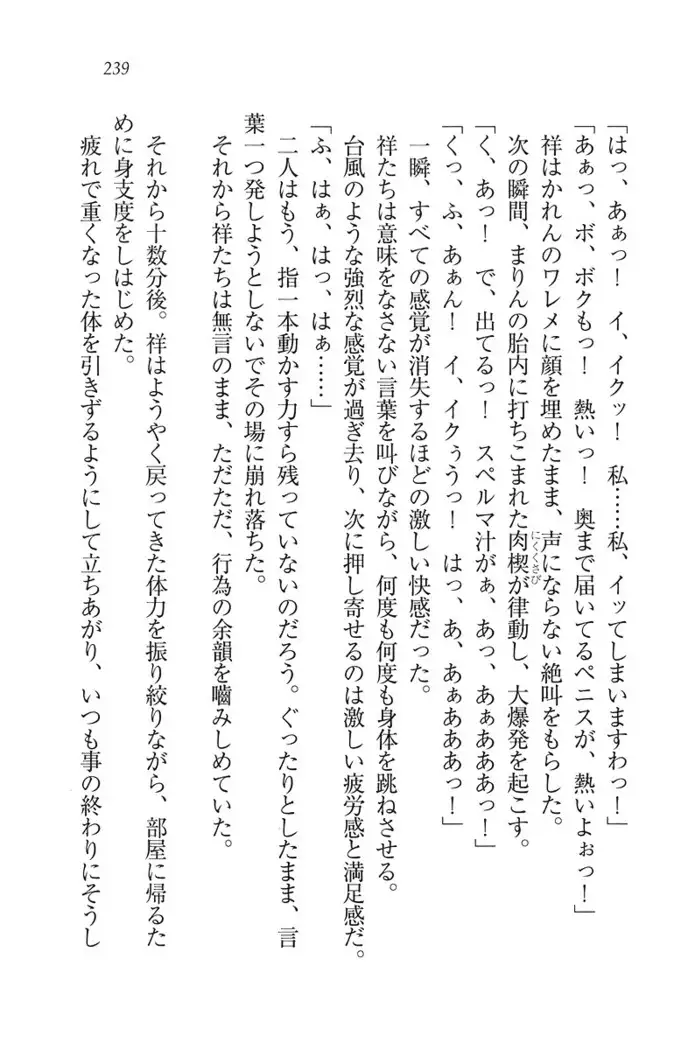 239
「はっ、あぁっ！　イ、イクッ！　私……私、イッてしまいますわっ！」
「あぁっ、ボ、ボクもっ！　熱いっ！　奥まで届いてるペニスが、熱いよぉっ！」
祥はかれんのワレメに顔を埋めたまま、声にならない絶叫をもらした。
次の瞬間、まりんの胎内に打ちこまれた肉楔が律動し、大爆発を起こす。
にくくさび
「く、あっ！　で、出てるっ！　スペルマ汁がぁ、あっ、あぁあああっ！」
「くっ、ふ、あぁん！　イ、イクぅうっ！　はっ、あ、あぁあああっ！」
一瞬、すべての感覚が消失するほどの激しい快感だった。
祥たちは意味をなさない言葉を叫びながら、何度も何度も身体を跳ねさせる。
台風のような強烈な感覚が過ぎ去り、次に押し寄せるのは激しい疲労感と満足感だ。
「ふ、はぁ、はっ、はぁ……」
二人はもう、指一本動かす力すら残っていないのだろう。ぐったりとしたまま、言
葉一つ発しようとしないでその場に崩れ落ちた。
それから祥たちは無言のまま、ただただ、行為の余韻を嚙みしめていた。
それから十数分後。祥はようやく戻ってきた体力を振り絞りながら、部屋に帰るた
めに身支度をしはじめた。
疲れで重くなった体を引きずるようにして立ちあがり、いつも事の終わりにそうし